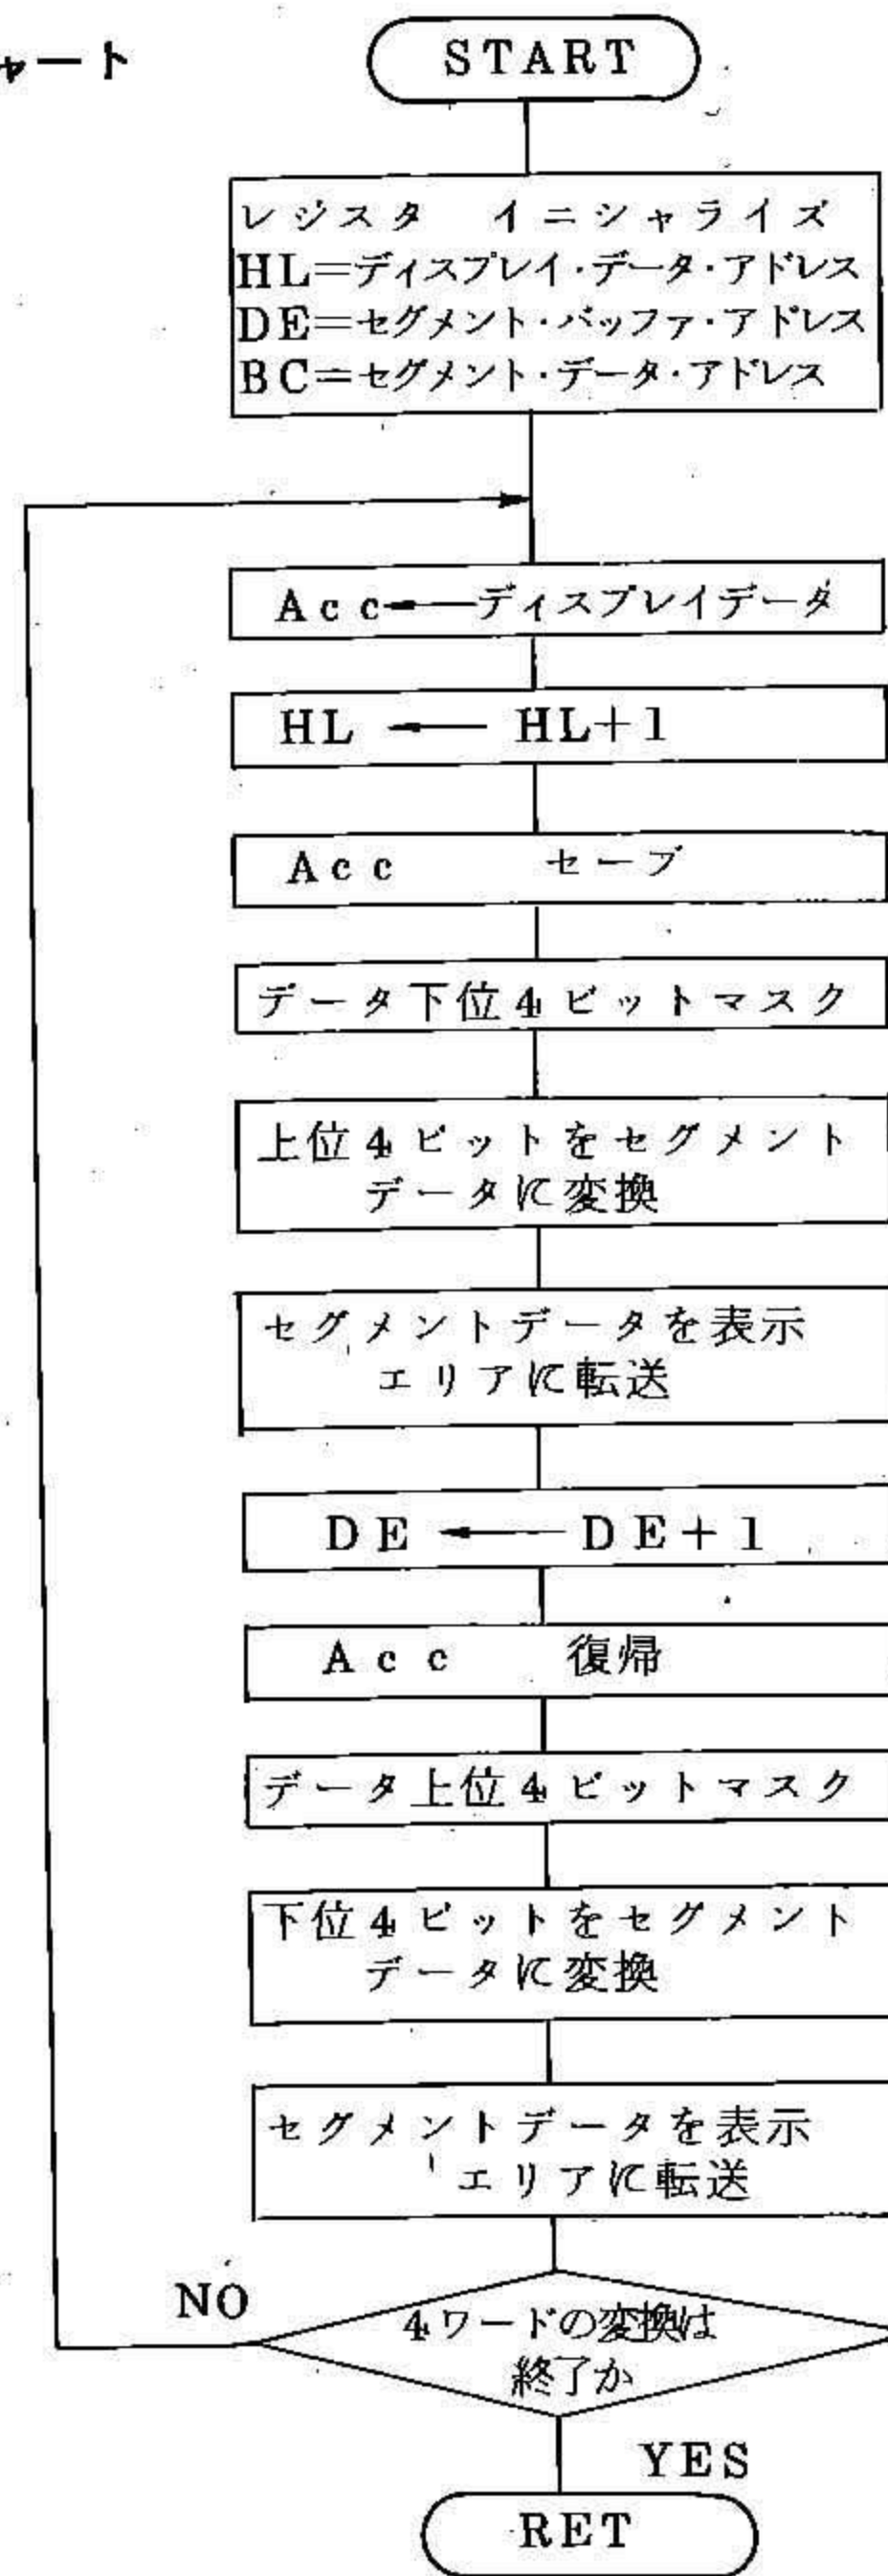 ャート
START
レジスタ イニシャライズ
HL=ディスプレイ・データ・アドレス
DE=セグメント・バッファ・アドレス
BC=セグメント・データ・アドレス
Acc←ディスプレイデータ
HL ← HL+1
Acc セーブ
データ下位4ビットマスク
上位4ビットをセグメント
データに変換
セグメントデータを表示
エリアに転送
DE ← DE+1
Acc 復帰
データ上位4ビットマスク
下位4ビットをセグメント
データに変換
セグメントデータを表示
エリアに転送
NO
4ワードの変換は
終了か
YES
RET